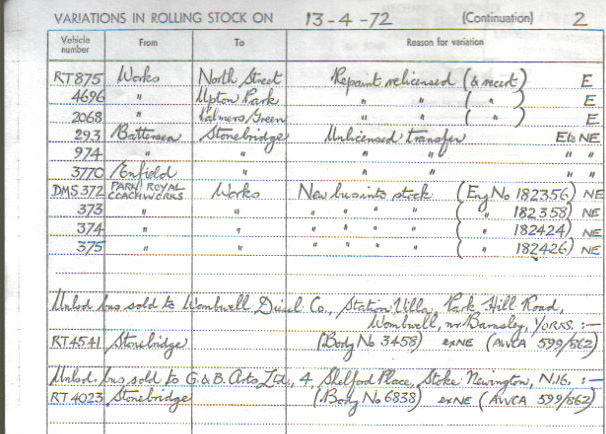 VARIATIONS IN ROLLING STOCK ON 13-4-72 (Continuation) 2
Vehicle number From To Reason for variation
RT875 Works North Street Repaint relicensed (& recert) E
4696 " Upton Park " " ( " ) E
2068 " Palmers Green " " ( " ) E
293 Battersea Stonebridge Unlicensed transfer E to NE
974 " " " " " "
3770 Enfield " " " " "
DMS 372 PARK ROYAL COACHWORKS Works New bus into stock (Eng No 182356) NE
373 " " " " " " ( " 182358) NE
374 " " " " " " ( " 182424) NE
375 " " " " " " ( " 182426) NE
Unlsd. bus sold to Wombwell Diesel Co., Station Villa, Park Hill Road,
Wombwell, nr Barnsley, YORKS. :—
RT4541 Stonebridge (Body No 3458) exNE (AWCA 599/562)
Unlsd. bus sold to G. & B. Arts Ltd., 4, Shelford Place, Stoke Newington, N.16. :—
RT4023 Stonebridge (Body No 6838) exNE (AWCA 599/562)